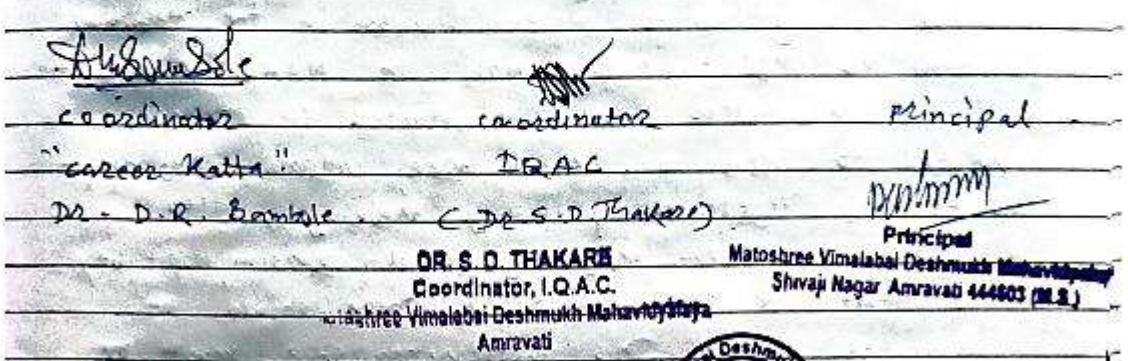 coordinator
"career Katta"
Dr. D.R. Bambole
coordinator
IQAC
(Dr S.D Thakare)
DR. S. D. THAKARE
Coordinator, I.Q.A.C.
Vimalabai Deshmukh Mahavidyalaya
Amravati
Principal
Principal
Matoshree Vimalabai Deshmukh Mahavidyalay
Shivaji Nagar Amravati 444603 (M.S.)